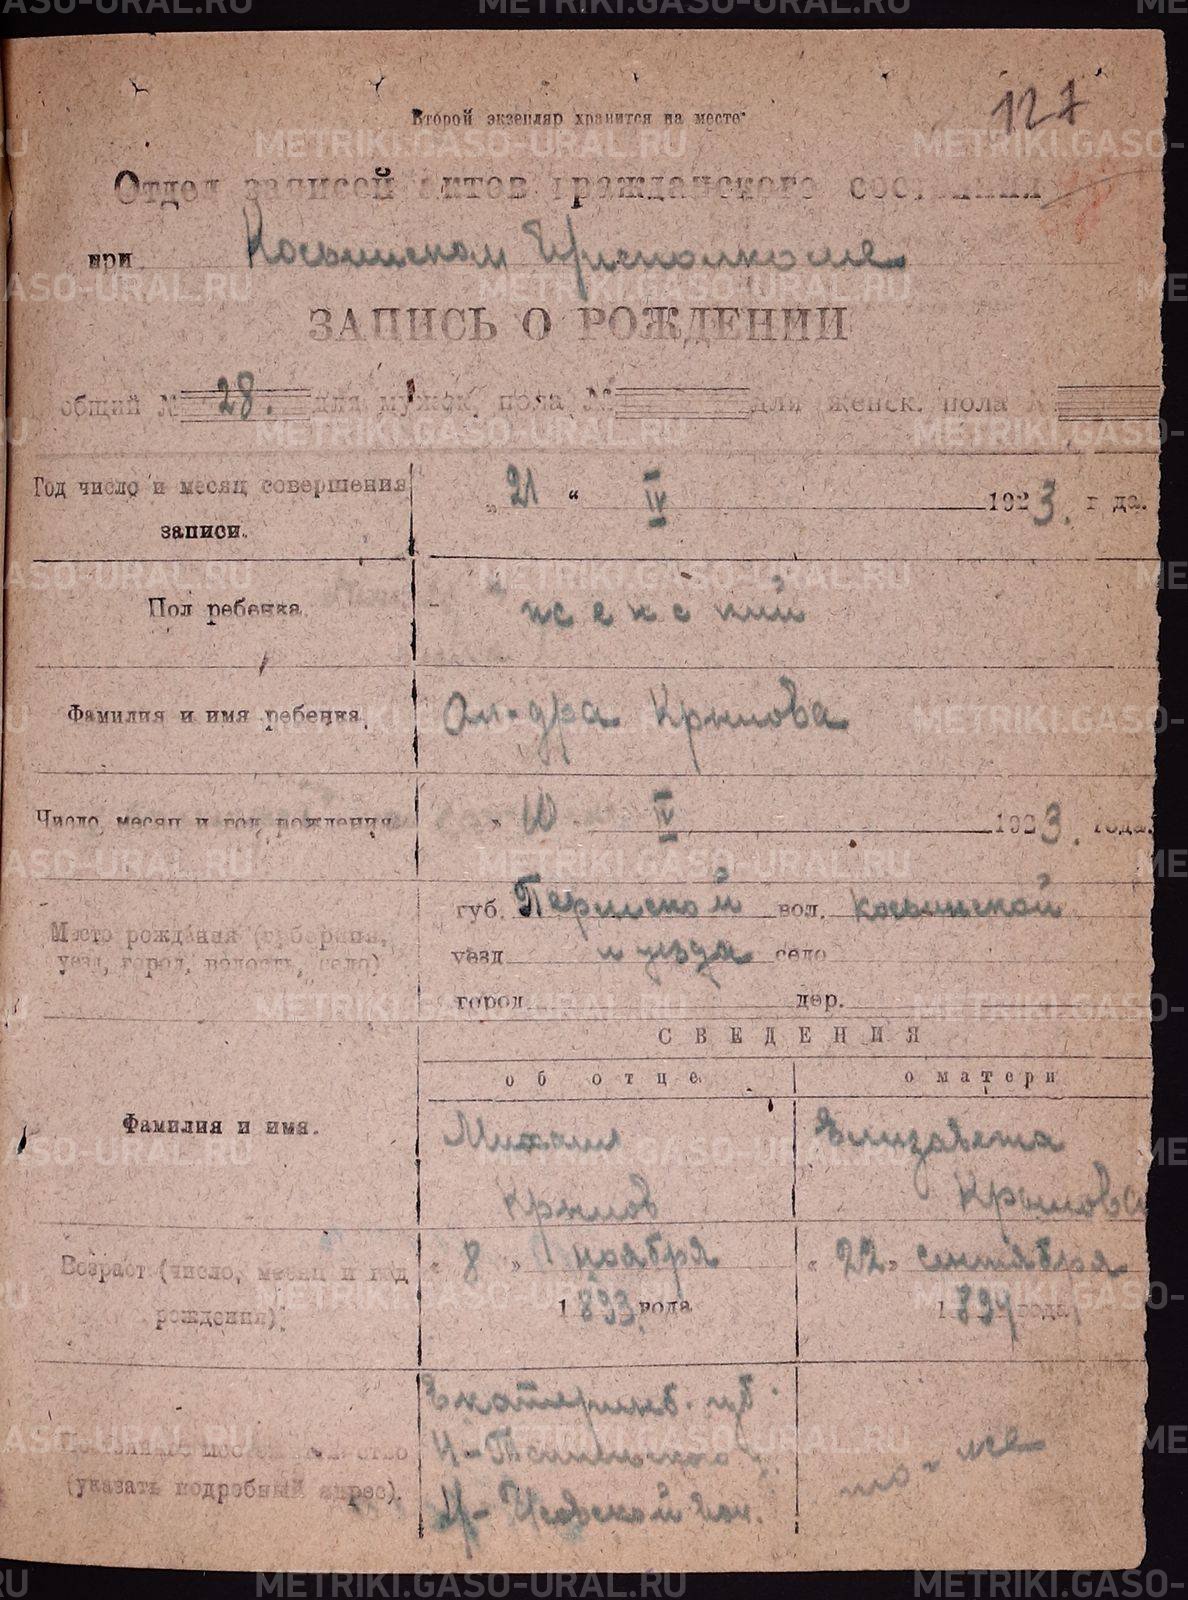 Второй экземпляр хранится на месте
127
Отдел записей актов гражданского состояния
при Косьинском Ц/исполкоме
ЗАПИСЬ О РОЖДЕНИИ
общий № 28. для мужск. пола № для женск. пола №
Год число и месяц совершения записи. „21“ IV 1923. года.
Пол ребенка. женский
Фамилия и имя ребенка. Ал-дра Крылова
Число, месяц и год рождения. „10 IV 1923. года.
Место рождения (губерния, уезд, город, волость, село)
губ. Пермской вол. Косьинской
уезд и уезда село
город дер.
СВЕДЕНИЯ
об отце о матери
Фамилия и имя.
Михаил Елизавета
Крылов Крылова
Возраст (число, месяц и год рождения).
„8„ ноября „22„ сентября
1893 года 1894 года
Постоянное местожительство (указать подробный адрес).
Екатеринб. губ. то-же
Н-Тагильского у.
Н-Исовской вол.
METRIKI.GASO-URAL.RU